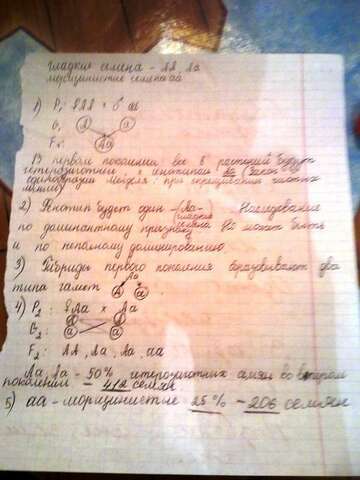 гладкие семена - АА, Аа
морщинистые семена аа
1) P1 ♀АА × ♂ аа
G1 А а
F1: Аа
В первом поколении все 8 растений будут
гетерозиготны, с генотипом Аа (закон
единообразия Менделя: при скрещивании чистых
линий)
2) Генотип будет один - (Аа- Наследование
гладкие
по доминантному признаку семена Но может быть
и по неполному доминированию.
3) Гибриды первого поколения образовывают два
Аа
типа гамет А а
4) P2: ♀Аа × Аа
G2: А А
а а
F2: АА, Аа, Аа, аа
Аа, Аа - 50% гетерозиготных семян во втором
поколении - 412 семян
5) аа - морщинистые 25% - 206 семян